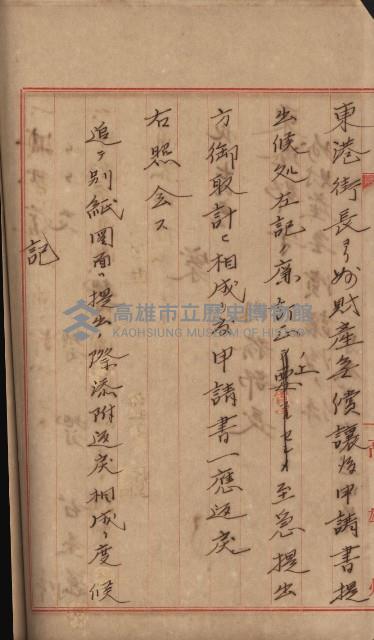 東港街長ヨリ財産無償讓渡申請書提
出候処左記ノ廉訂正ノ上至急提出
方御取計ヒ相成度申請書一應返戻
右照会ス
追テ別紙図面ヲ提出ノ際添附返戻相成リ度候
記
高雄市立歷史博物館
KAOHSIUNG MUSEUM OF HISTORY
高雄州